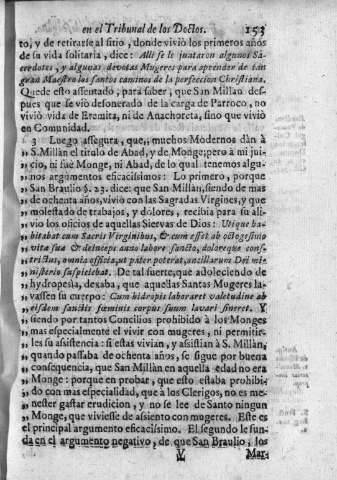 en el Tribunal de los Doctos. 153
to, y de retirarse al sitio, donde vivió los primeros años
de su vida solitaria, dice: Alli se le juntaron algunos Sa-
cerdotes, y algunas devotas Mugeres para aprender de tan
gran Maestro los santos caminos de la perfeccion Christiana.
Quede esto assentado, para saber, que San Millan des-
pues que se viò desonerado de la carga de Parroco, no
vivió vida de Eremita, ni de Anachoreta, sino que vivió
en Comunidad.
3 Luego assegura, que,, muchos Modernos dàn à
,, S. Millàn el titulo de Abad, y de Monge; pero à mi jui-
,, cio, ni fue Monge, ni Abad, de lo qual tenemos algu-
,, nos argumentos eficacissimos: Lo primero, porque
,, San Braulio §. 23. dice: que San Millan, siendo de mas
,, de ochenta años, vivió con las Sagradas Virgines, y que
,, molestado de trabajos, y dolores, recibia para su ali-
,, vio los oficios de aquellas Siervas de Dios: Utique ha-
,, bitabat cum Sacris Virginibus, & cum esset ab octogesimo
,, vitæ suæ & deinceps anno labore sancto, doloreque cons-
,, trictus, omnia officia, ut pater poterat, ancillarum Dei mi-
,, nisterio suscipiebat. De tal suerte, que adoleciendo de
,, hydropesia, dexaba, que aquellas Santas Mugeres la-
,, vassen su cuerpo: Cum hidropis laboraret valetudine ab
,, eisdem sanctis fœminis corpus suum lavari sineret. Y
,, siendo por tantos Concilios prohibido à los Monges
,, mas especialmente el vivir con mugeres, ni permitir-
,, les su asistencia: si estas vivian, y assistian à S. Millàn,
,, quando passaba de ochenta años, se sigue por buena
,, consequencia, que San Millàn en aquella edad no era
,, Monge: porque en probar, que esto estaba prohibi-
,, do con mas especialidad, que à los Clerigos, no es me-
,, nester gastar erudicion, y no se lee de Santo ningun
,, Monge, que viviesse de asiento con mugeres. Este es
,, el principal argumento eficacissimo. El segundo le fun-
da en el argumento negativo, de que San Braulio, los
V Mar-